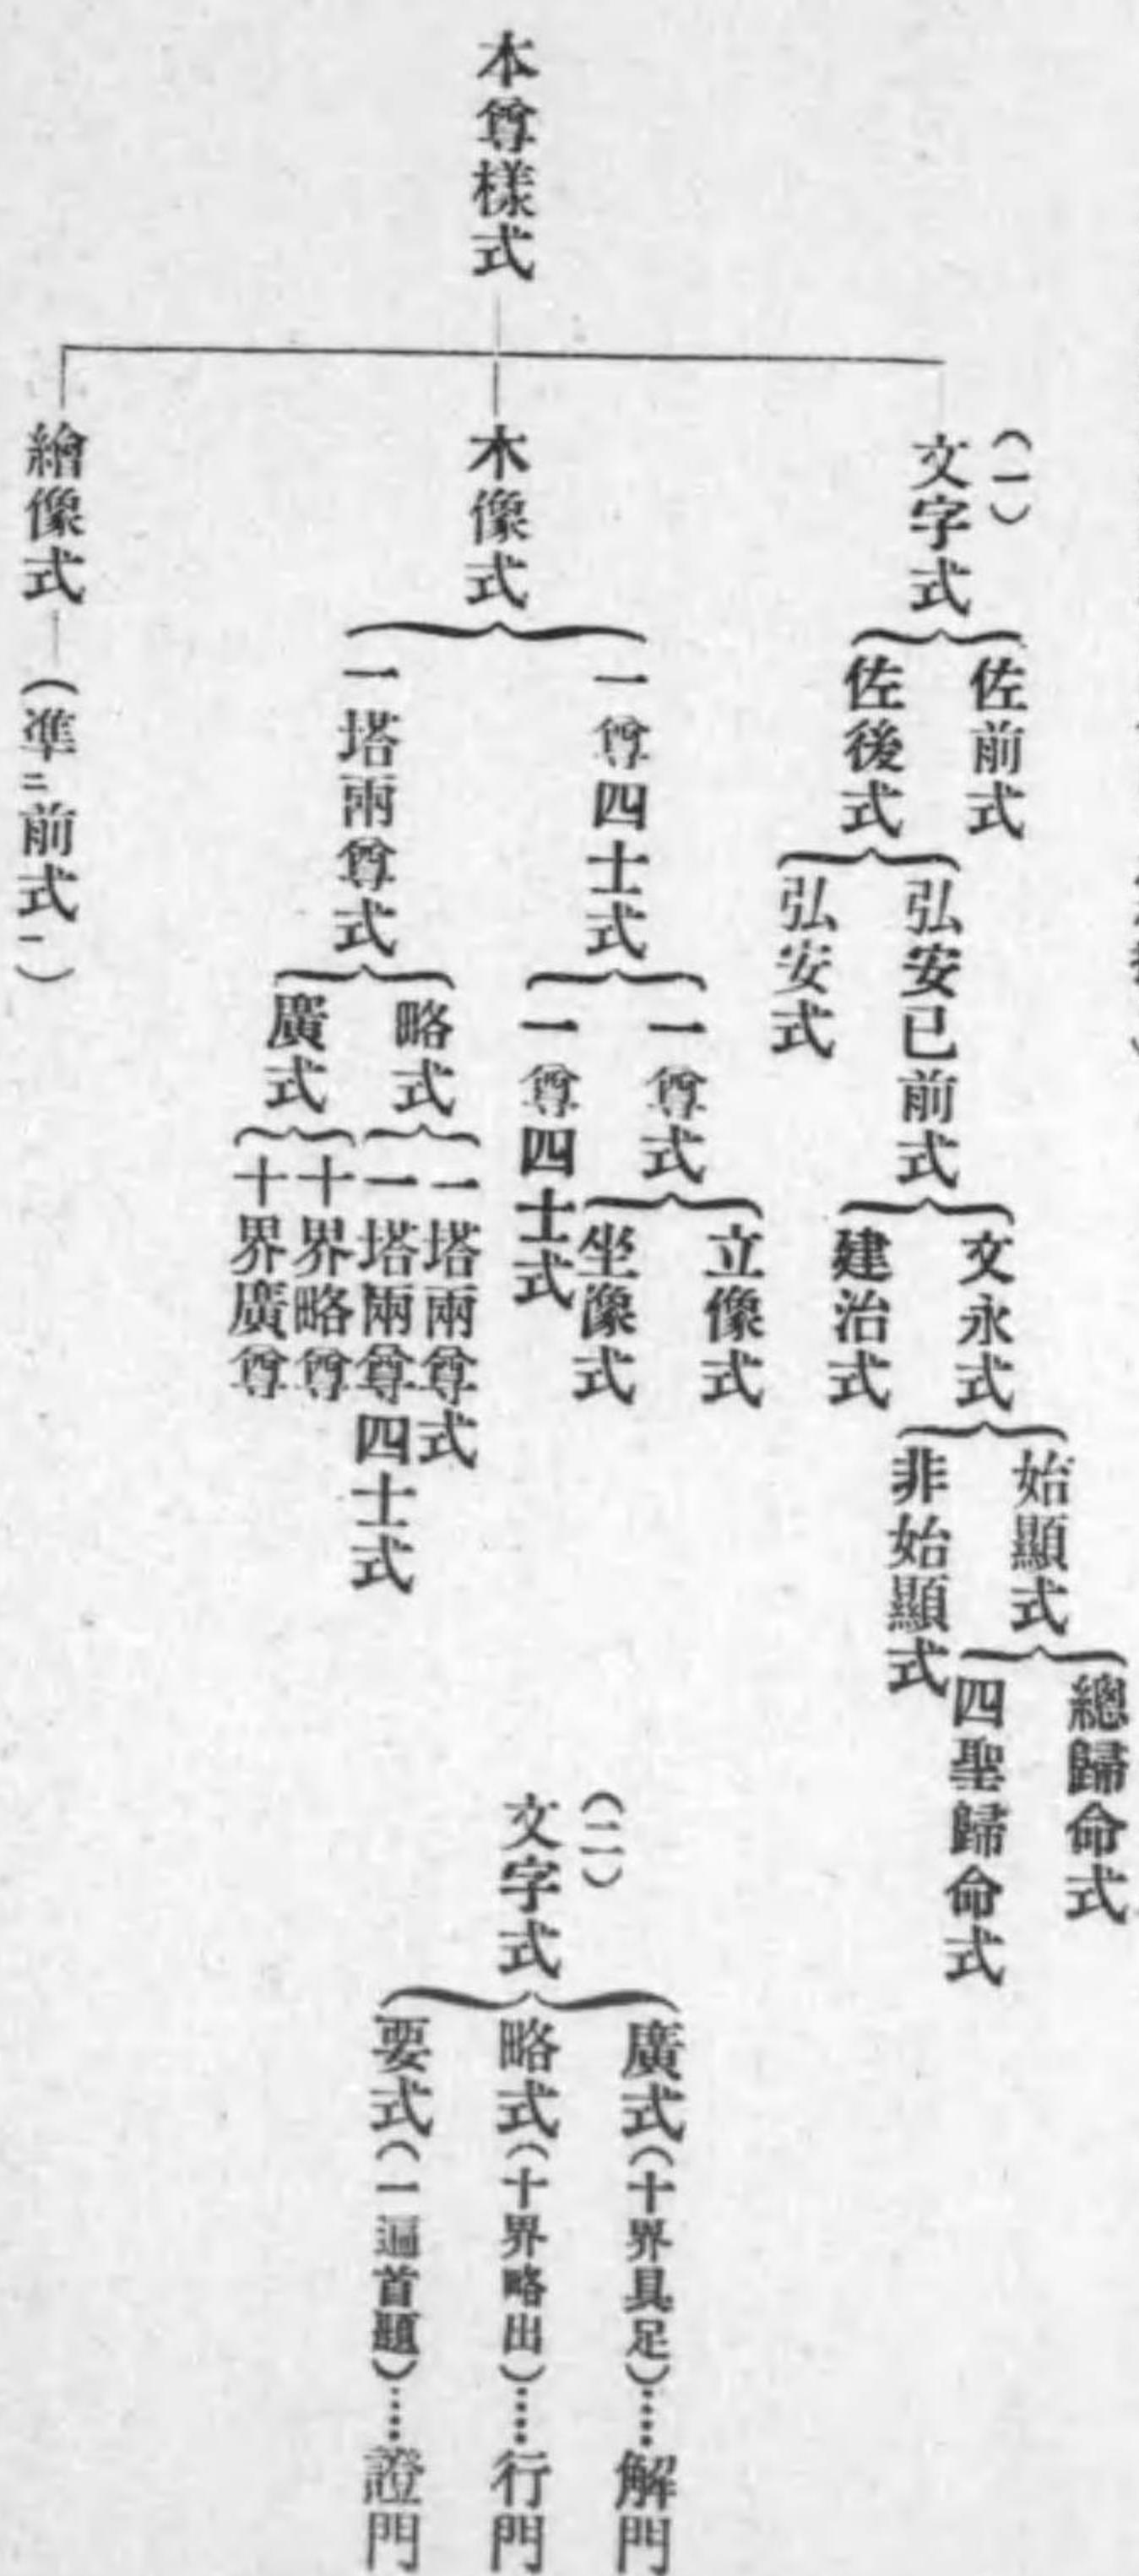 本尊樣式
(一)
文字式
佐前式
佐後式
弘安已前式
文永式
始顯式
總歸命式
四聖歸命式
非始顯式
建治式
弘安式
木像式
一尊四士式
一尊式
立像式
坐像式
一尊四士式
一塔兩尊式
略式
一塔兩尊式
一塔兩尊四士式
廣式
十界略尊
十界廣尊
繪像式—(準二前式一)
(二)
文字式
廣式(十界具足)……解門
略式(十界略出)……行門
要式(一遍首題)……證門